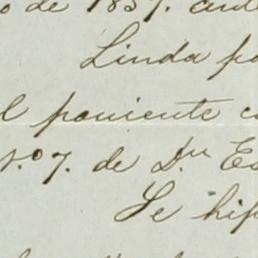 o de 1857. ante
Linda po
l poniente co
N.º 7. de Dn Es
Se hip